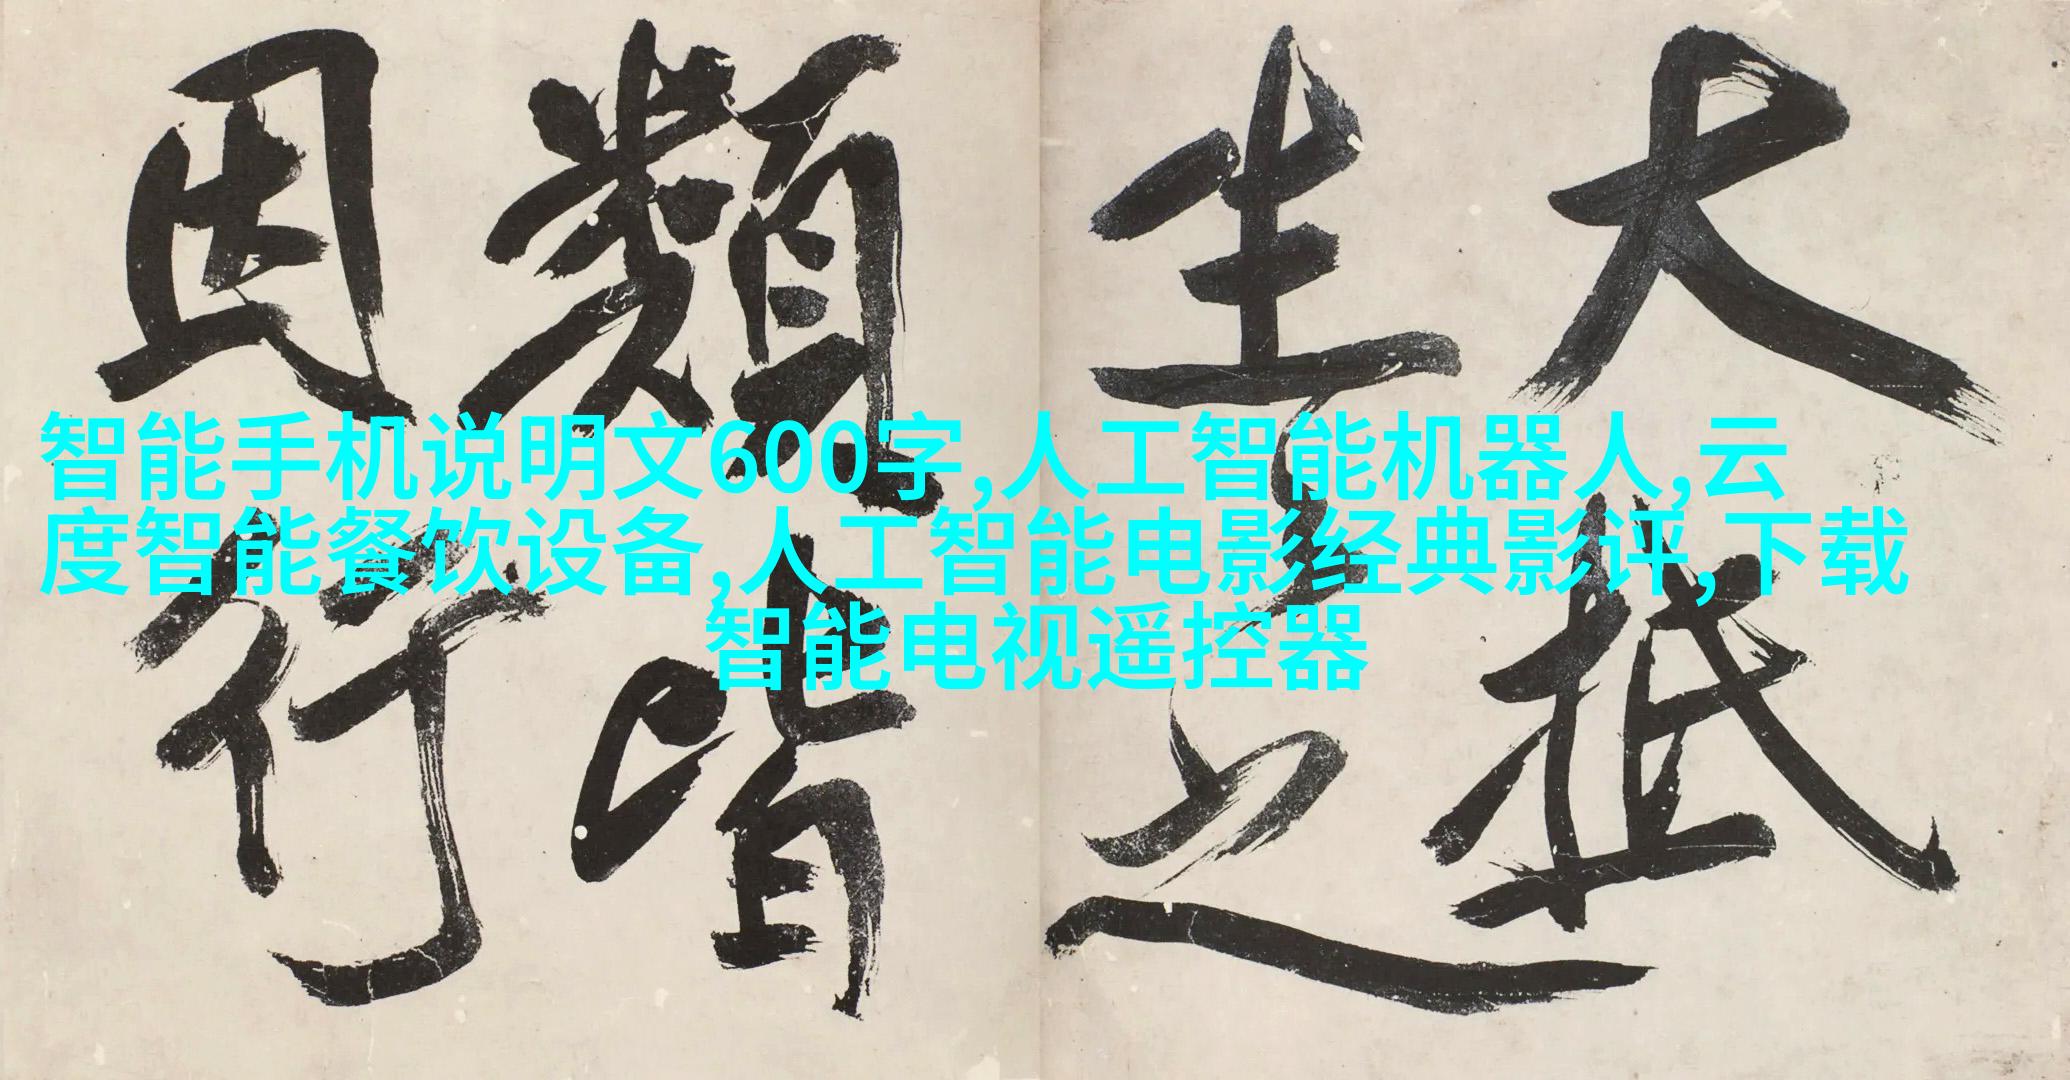 智能手机说明文600字,人工智能机器人,云
度智能餐饮设备,人工智能电影经典影评,下载
智能电视遥控器
大抵
生之
類皆
因行